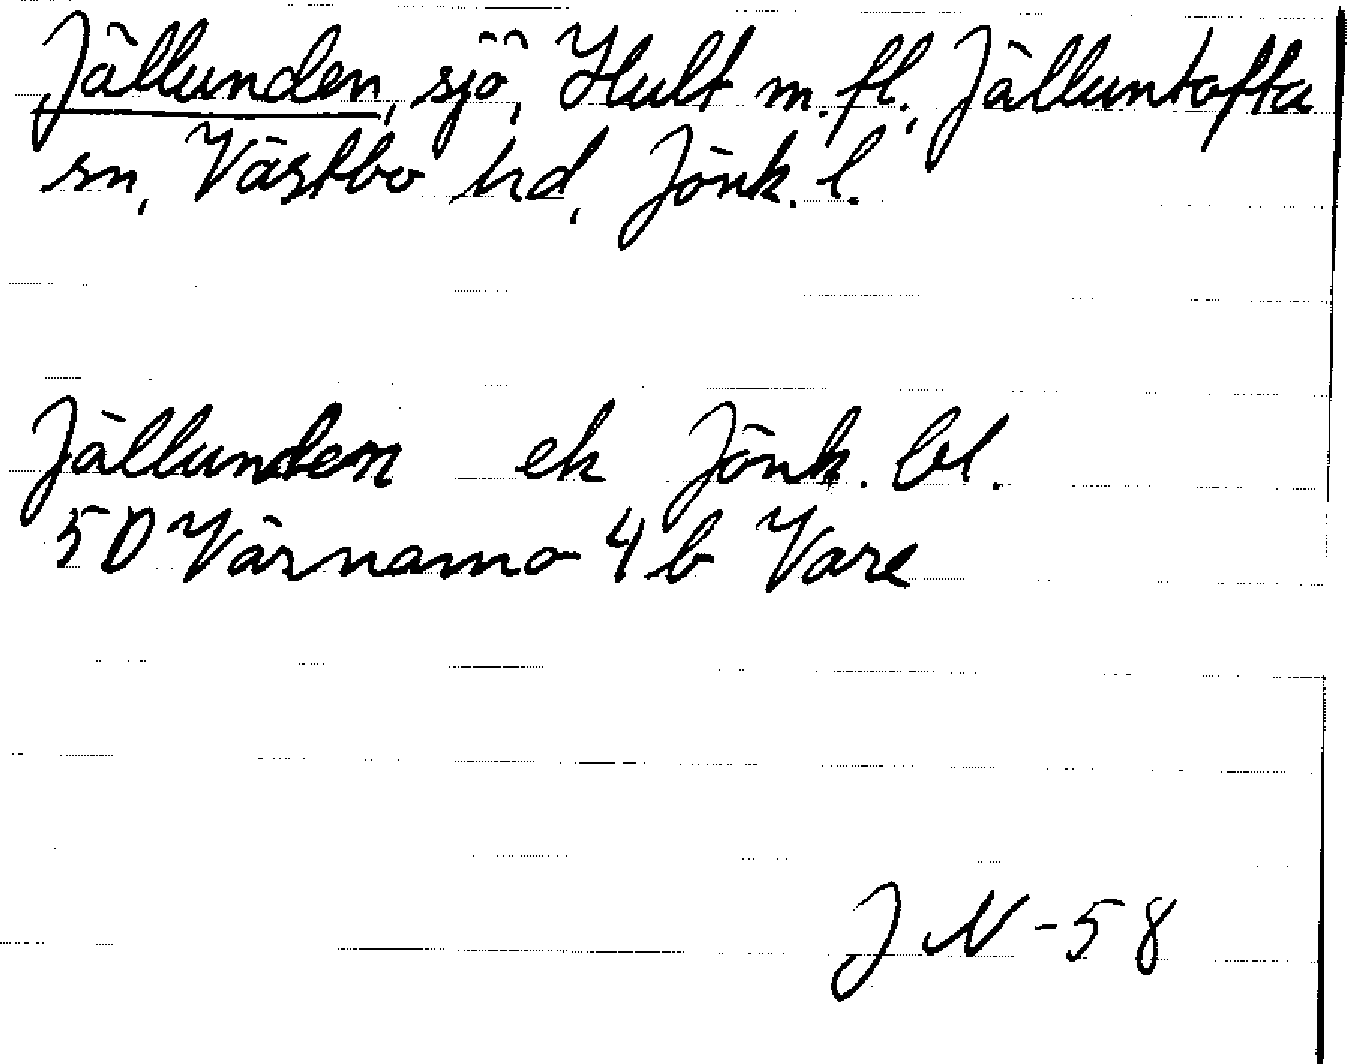 Jällunden, sjö, Hult m.fl., Jälluntofta
sn, Västbo hd, Jönk. l.
Jällunden ek Jönk. bl.
5D Värnamo 4 b Vare
J N-58